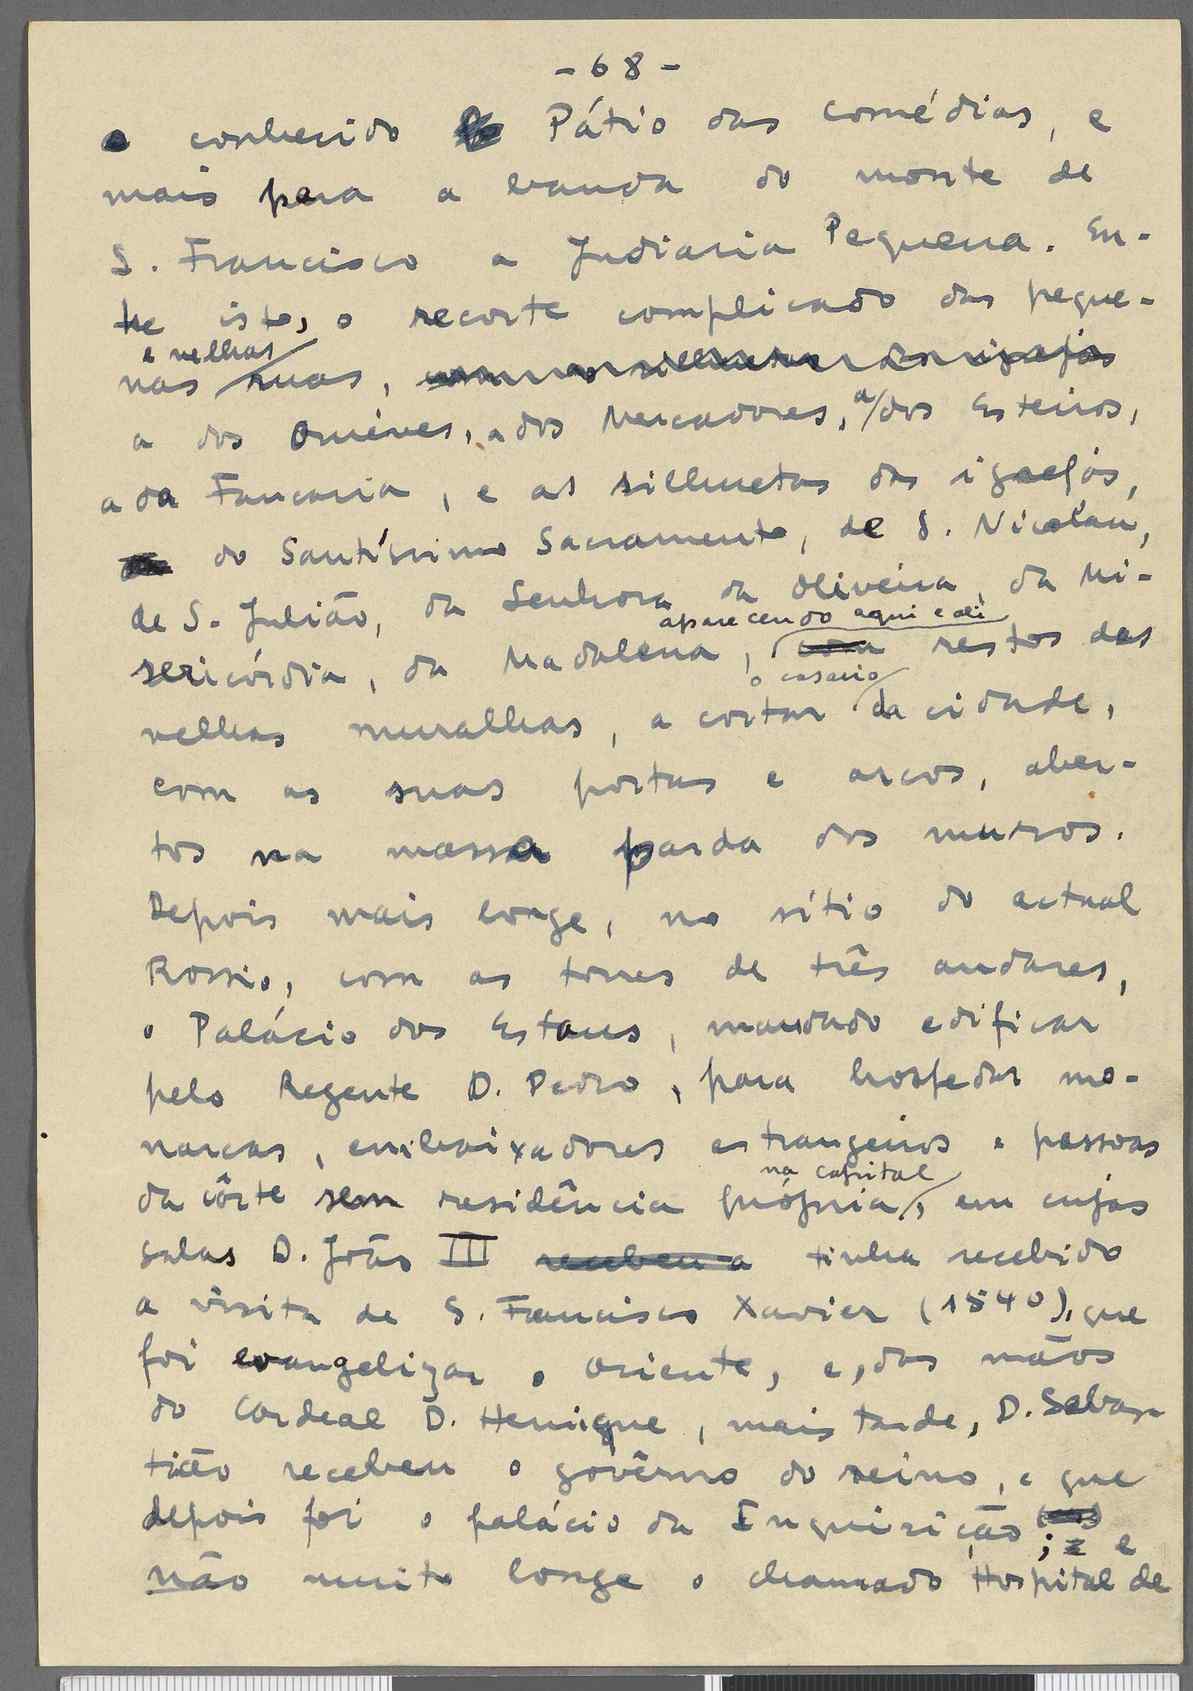 - 68 -
o conhecido Pátio das comédias, e
mais para a banda do monte de
S. Francisco a Judiaria Pequena. En-
tre isto, o recorte complicado das peque-
e velhas
nas ruas,
a dos Ourives, a dos Mercadores, a dos Esteiros,
a da Fancaria, e as silhuetas das igrejas,
do Santíssimo Sacramento, de S. Nicolau,
de S. Julião, da Senhora da Oliveira, da Mi-
aparecendo aqui e ali
sericórdia, da Madalena, restos das
o casario
velhas muralhas, a cortar da cidade,
com as suas portas e arcos, aber-
tos na massa parda dos muros.
Depois mais longe, no sítio do actual
Rossio, com as torres de três andares,
o Palácio dos Estaus, mandado edificar
pelo Regente D. Pedro, para hospedar mo-
narcas, embaixadores estrangeiros e pessoas
na capital
da côrte sem residência própria, em cujas
salas D. João III recebeu a tinha recebido
a visita de S. Francisco Xavier (1540), que
foi evangelizar o Oriente, e, das mãos
do Cardeal D. Henrique, mais tarde, D. Sebas-
tião recebeu o govêrno do reino, e que
depois foi o palácio da Inquisição; e
não muito longe o chamado Hospital de